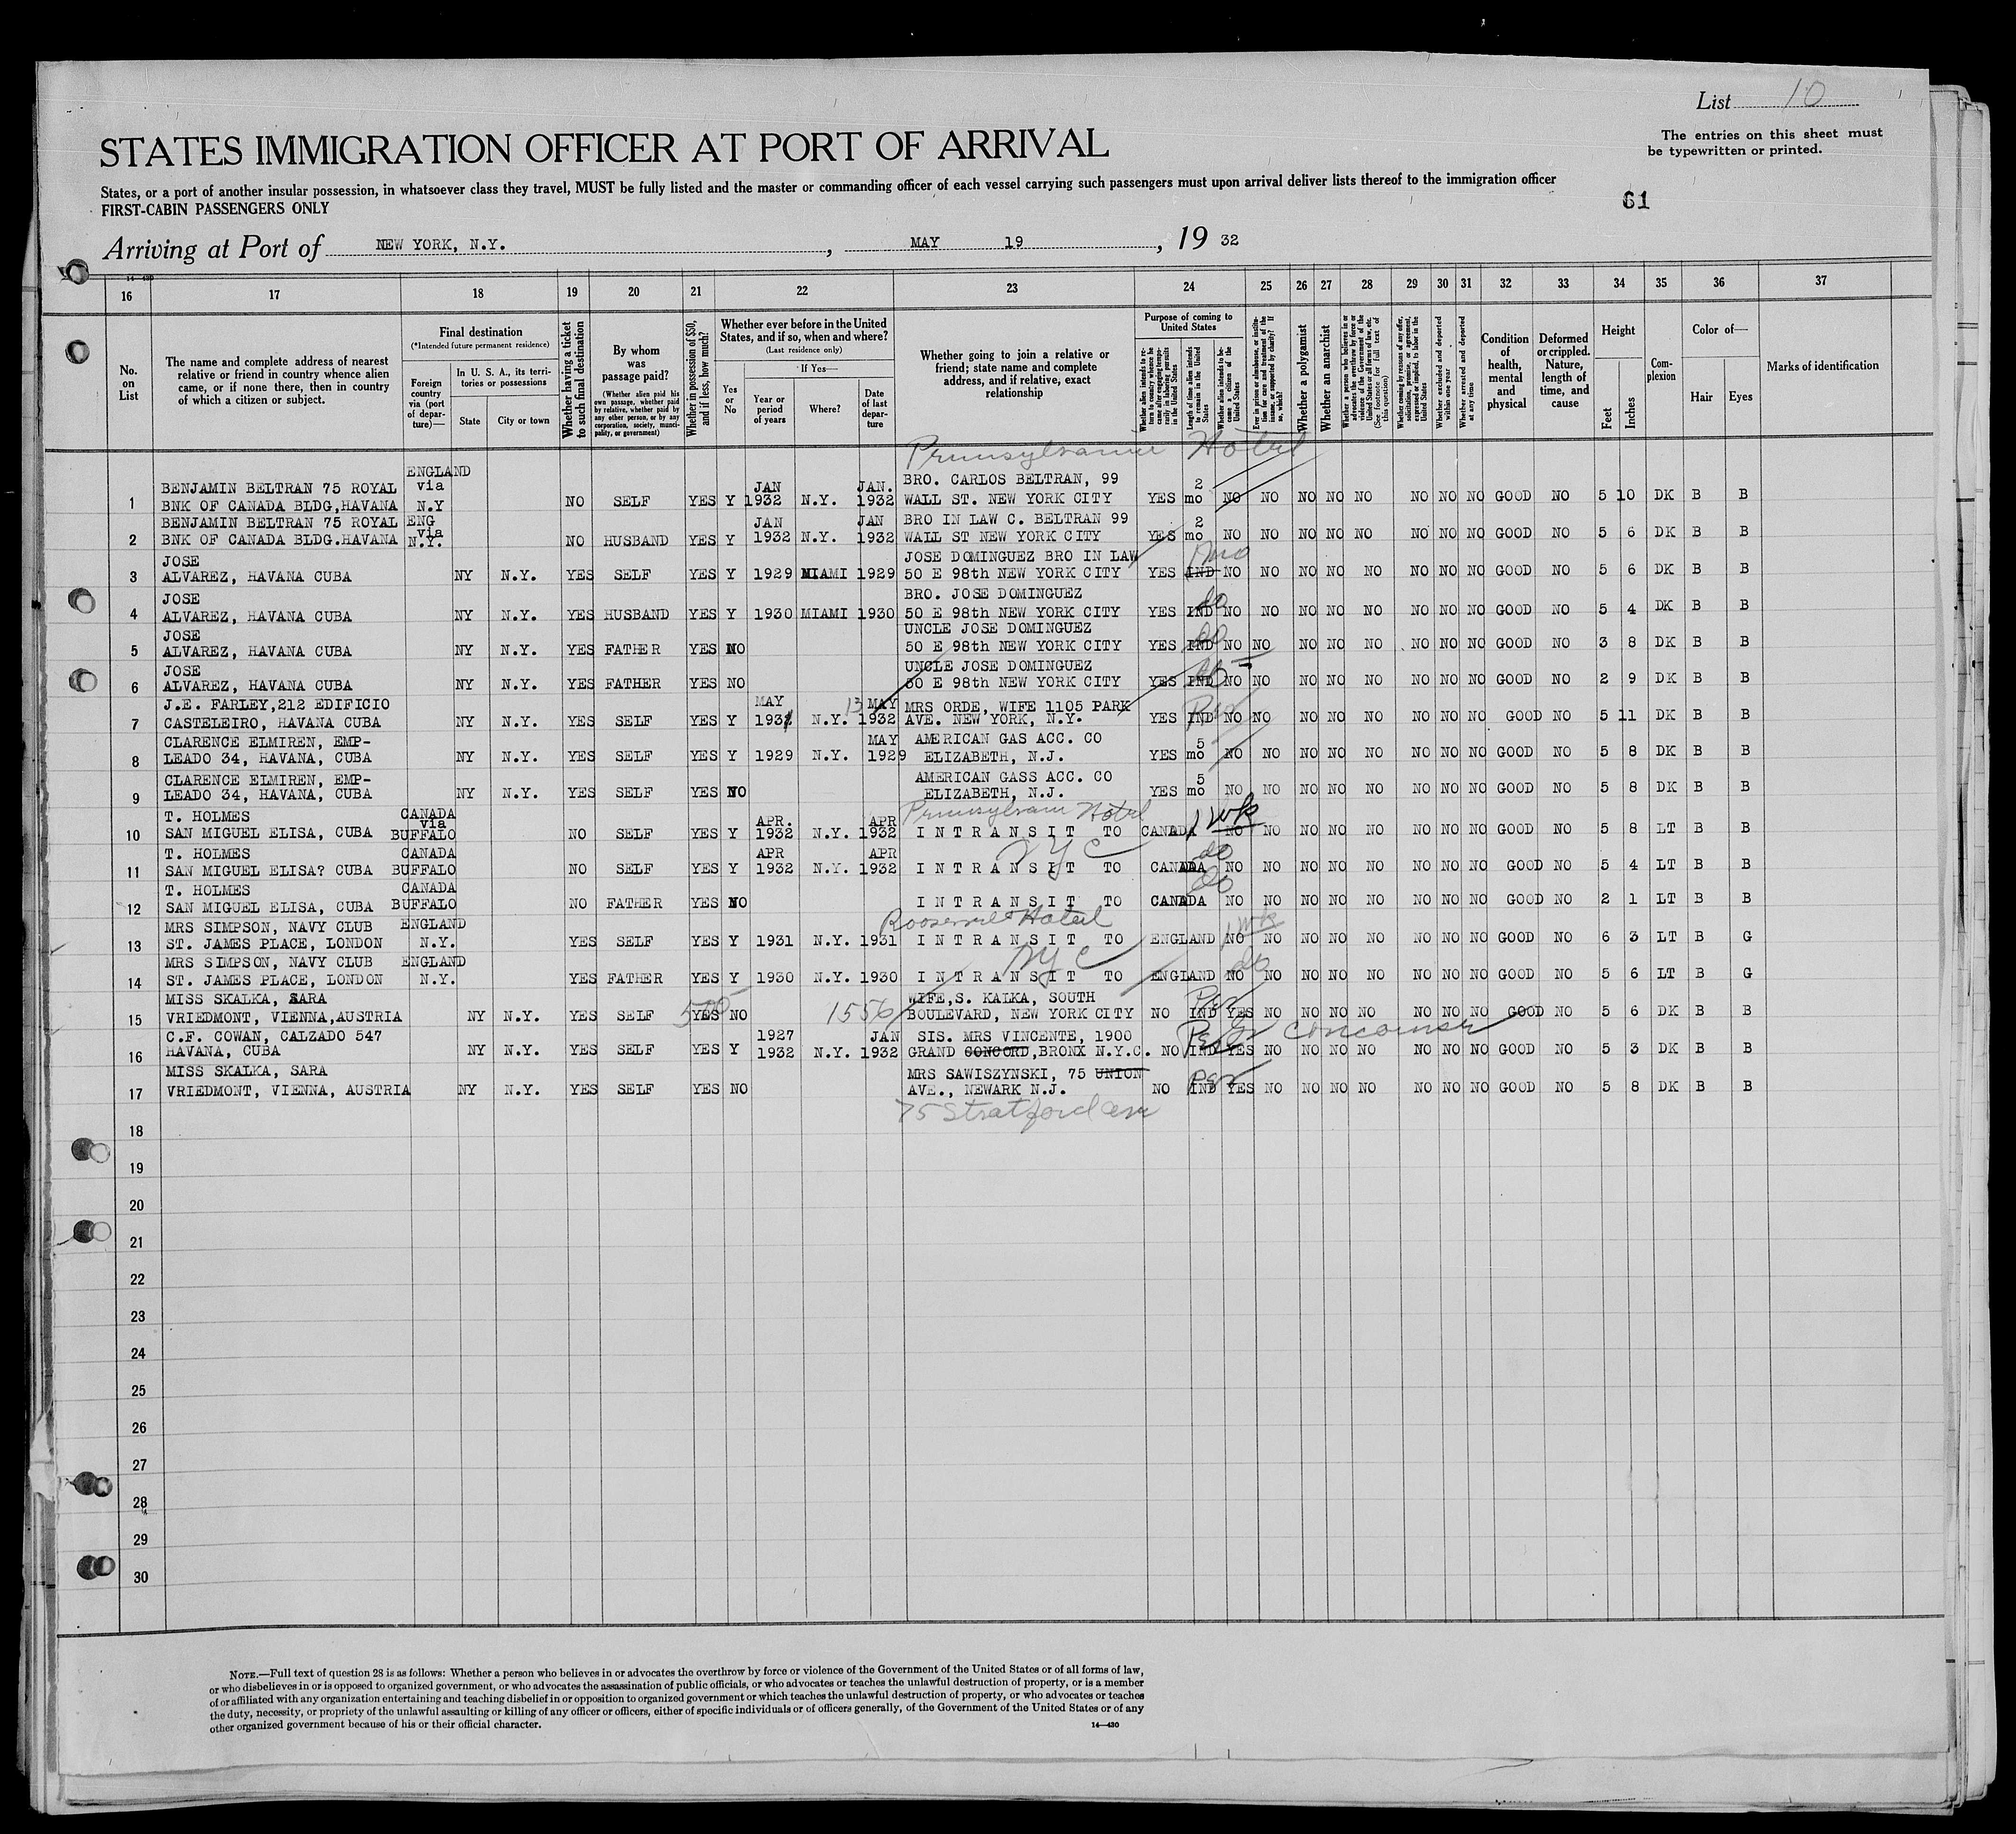 List 10
The entries on this sheet must
be typewritten or printed.
STATES IMMIGRATION OFFICER AT PORT OF ARRIVAL
States, or a port of another insular possession, in whatsoever class they travel, MUST be fully listed and the master or commanding officer of each vessel carrying such passengers must upon arrival deliver lists thereof to the immigration officer
FIRST-CABIN PASSENGERS ONLY
61
Arriving at Port of NEW YORK, N.Y. , MAY 19 , 19 32
14—430
16 17 18 19 20 21 22 23 24 25 26 27 28 29 30 31 32 33 34 35 36 37
No. on List
The name and complete address of nearest relative or friend in country whence alien came, or if none there, then in country of which a citizen or subject.
Final destination
(*Intended future permanent residence)
Foreign country via (port of departure)—
In U. S. A., its territories or possessions
State
City or town
Whether having a ticket to such final destination
By whom was passage paid?
(Whether alien paid his own passage, whether paid by relative, whether paid by any other person, or by any corporation, society, municipality, or government)
Whether in possession of $50, and if less, how much?
Whether ever before in the United States, and if so, when and where?
(Last residence only)
Yes or No
If Yes—
Year or period of years
Where?
Date of last departure
Whether going to join a relative or friend; state name and complete address, and if relative, exact relationship
Purpose of coming to United States
Whether alien intends to return to country whence he came after engaging temporarily in laboring pursuits in the United States
Length of time alien intends to remain in the United States
Whether alien intends to become a citizen of the United States
Ever in prison or almshouse, or institution for care and treatment of the insane, or supported by charity? If so, which?
Whether a polygamist
Whether an anarchist
Whether a person who believes in or advocates the overthrow by force or violence of the Government of the United States or all forms of law, etc. (See footnote for full text of this question)
Whether coming by reason of any offer, solicitation, promise, or agreement, expressed or implied, to labor in the United States
Whether excluded and deported within one year
Whether arrested and deported at any time
Condition of health, mental and physical
Deformed or crippled. Nature, length of time, and cause
Height
Feet
Inches
Complexion
Color of—
Hair
Eyes
Marks of identification
Pennsylvania Hotel
ENGLAND
BENJAMIN BELTRAN 75 ROYAL via JAN JAN. BRO. CARLOS BELTRAN, 99 2
1 BNK OF CANADA BLDG,HAVANA N.Y NO SELF YES Y 1932 N.Y. 1932 WALL ST. NEW YORK CITY YES mo NO NO NO NO NO NO NO NO GOOD NO 5 10 DK B B
BENJAMIN BELTRAN 75 ROYAL ENG via JAN JAN BRO IN LAW C. BELTRAN 99 2
2 BNK OF CANADA BLDG.HAVANA N.Y. NO HUSBAND YES Y 1932 N.Y. 1932 WALL ST NEW YORK CITY YES mo NO NO NO NO NO NO NO NO GOOD NO 5 6 DK B B
JOSE JOSE DOMINGUEZ BRO IN LAW
3 ALVAREZ, HAVANA CUBA NY N.Y. YES SELF YES Y 1929 MIAMI 1929 50 E 98th NEW YORK CITY YES IND NO NO NO NO NO NO NO NO GOOD NO 5 6 DK B B
JOSE BRO. JOSE DOMINGUEZ do
4 ALVAREZ, HAVANA CUBA NY N.Y. YES HUSBAND YES Y 1930 MIAMI 1930 50 E 98th NEW YORK CITY YES IND NO NO NO NO NO NO NO NO GOOD NO 5 4 DK B B
JOSE UNCLE JOSE DOMINGUEZ do
5 ALVAREZ, HAVANA CUBA NY N.Y. YES FATHER YES NO 50 E 98th NEW YORK CITY YES IND NO NO NO NO NO NO NO NO GOOD NO 3 8 DK B B
JOSE UNCLE JOSE DOMINGUEZ do
6 ALVAREZ, HAVANA CUBA NY N.Y. YES FATHER YES NO 50 E 98th NEW YORK CITY YES IND NO NO NO NO NO NO NO NO GOOD NO 2 9 DK B B
J.E. FARLEY,212 EDIFICIO MAY 13 MAY MRS ORDE, WIFE 1105 PARK Per
7 CASTELEIRO, HAVANA CUBA NY N.Y. YES SELF YES Y 1931 N.Y. 1932 AVE. NEW YORK, N.Y. YES IND NO NO NO NO NO NO NO NO GOOD NO 5 11 DK B B
CLARENCE ELMIREN, EMP- MAY AMERICAN GAS ACC. CO 5
8 LEADO 34, HAVANA, CUBA NY N.Y. YES SELF YES Y 1929 N.Y. 1929 ELIZABETH, N.J. YES mo NO NO NO NO NO NO NO NO GOOD NO 5 8 DK B B
CLARENCE ELMIREN, EMP- AMERICAN GASS ACC. CO 5
9 LEADO 34, HAVANA, CUBA NY N.Y. YES SELF YES NO ELIZABETH, N.J. YES mo NO NO NO NO NO NO NO NO GOOD NO 5 8 DK B B
T. HOLMES CANADA via APR. APR Pennsylvania Hotel 1 wk
10 SAN MIGUEL ELISA, CUBA BUFFALO NO SELF YES Y 1932 N.Y. 1932 INTRANSIT TO CANADA NO NO NO NO NO NO NO NO GOOD NO 5 8 LT B B
T. HOLMES CANADA APR APR NYC do
11 SAN MIGUEL ELISA? CUBA BUFFALO NO SELF YES Y 1932 N.Y. 1932 INTRANSIT TO CANADA NO NO NO NO NO NO NO NO GOOD NO 5 4 LT B B
T. HOLMES CANADA do
12 SAN MIGUEL ELISA, CUBA BUFFALO NO FATHER YES NO INTRANSIT TO CANADA NO NO NO NO NO NO NO NO GOOD NO 2 1 LT B B
MRS SIMPSON, NAVY CLUB ENGLAND Roosevelt Hotel 1 wk
13 ST. JAMES PLACE, LONDON N.Y. YES SELF YES Y 1931 N.Y. 1931 INTRANSIT TO ENGLAND NO NO NO NO NO NO NO NO GOOD NO 6 3 LT B G
MRS SIMPSON, NAVY CLUB ENGLAND NYC do
14 ST. JAMES PLACE, LONDON N.Y. YES FATHER YES Y 1930 N.Y. 1930 INTRANSIT TO ENGLAND NO NO NO NO NO NO NO NO GOOD NO 5 6 LT B G
MISS SKALKA, SARA 500 1556 WIFE,S. KALKA, SOUTH Per
15 VRIEDMONT, VIENNA,AUSTRIA NY N.Y. YES SELF YES NO BOULEVARD, NEW YORK CITY NO IND YES NO NO NO NO NO NO NO GOOD NO 5 6 DK B B
C.F. COWAN, CALZADO 547 1927 JAN SIS. MRS VINCENTE, 1900 Per
16 HAVANA, CUBA NY N.Y. YES SELF YES Y 1932 N.Y. 1932 GRAND CONCORD,BRONX N.Y.C. NO IND YES NO NO NO NO NO NO NO GOOD NO 5 3 DK B B
MISS SKALKA, SARA MRS SAWISZYNSKI, 75 UNION Per
17 VRIEDMONT, VIENNA, AUSTRIA NY N.Y. YES SELF YES NO AVE., NEWARK N.J. NO IND YES NO NO NO NO NO NO NO GOOD NO 5 8 DK B B
75 Stratford ave
18
19
20
21
22
23
24
25
26
27
28
29
30
NOTE.—Full text of question 28 is as follows: Whether a person who believes in or advocates the overthrow by force or violence of the Government of the United States or of all forms of law,
or who disbelieves in or is opposed to organized government, or who advocates the assassination of public officials, or who advocates or teaches the unlawful destruction of property, or is a member
of or affiliated with any organization entertaining and teaching disbelief in or opposition to organized government or which teaches the unlawful destruction of property, or who advocates or teaches
the duty, necessity, or propriety of the unlawful assaulting or killing of any officer or officers, either of specific individuals or of officers generally, of the Government of the United States or of any
other organized government because of his or their official character.
14—430